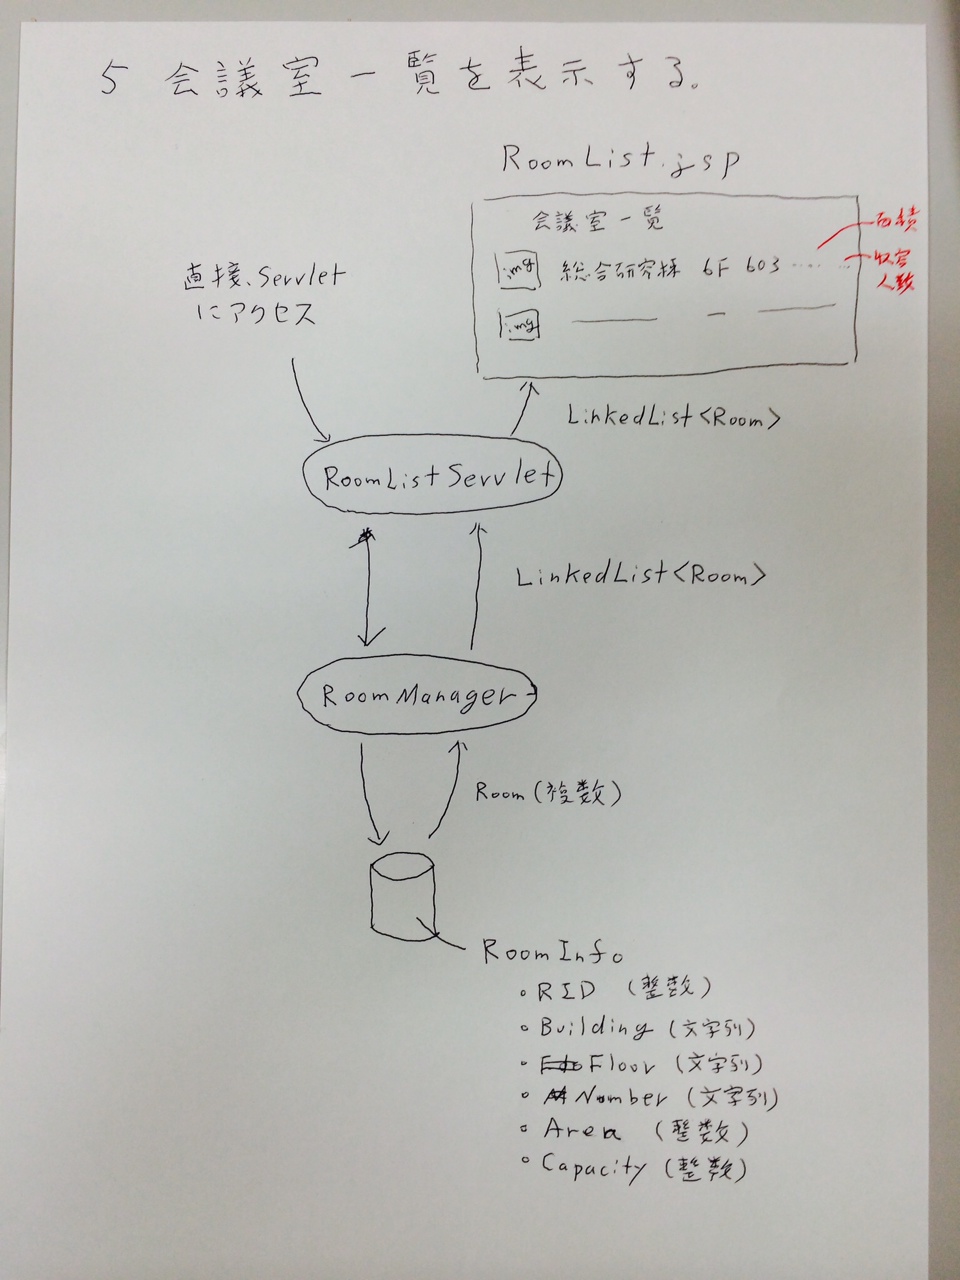 5 会議室一覧を表示する。
RoomList.jsp
会議室一覧
img 総合研究棟 6F 603 ‥‥ ‥‥
面積
収容
人数
img
直接、Servlet
にアクセス
LinkedList<Room>
RoomListServlet
LinkedList<Room>
RoomManager
Room (複数)
RoomInfo
• RID (整数)
• Building (文字列)
• Floor (文字列)
• Number (文字列)
• Area (整数)
• Capacity (整数)